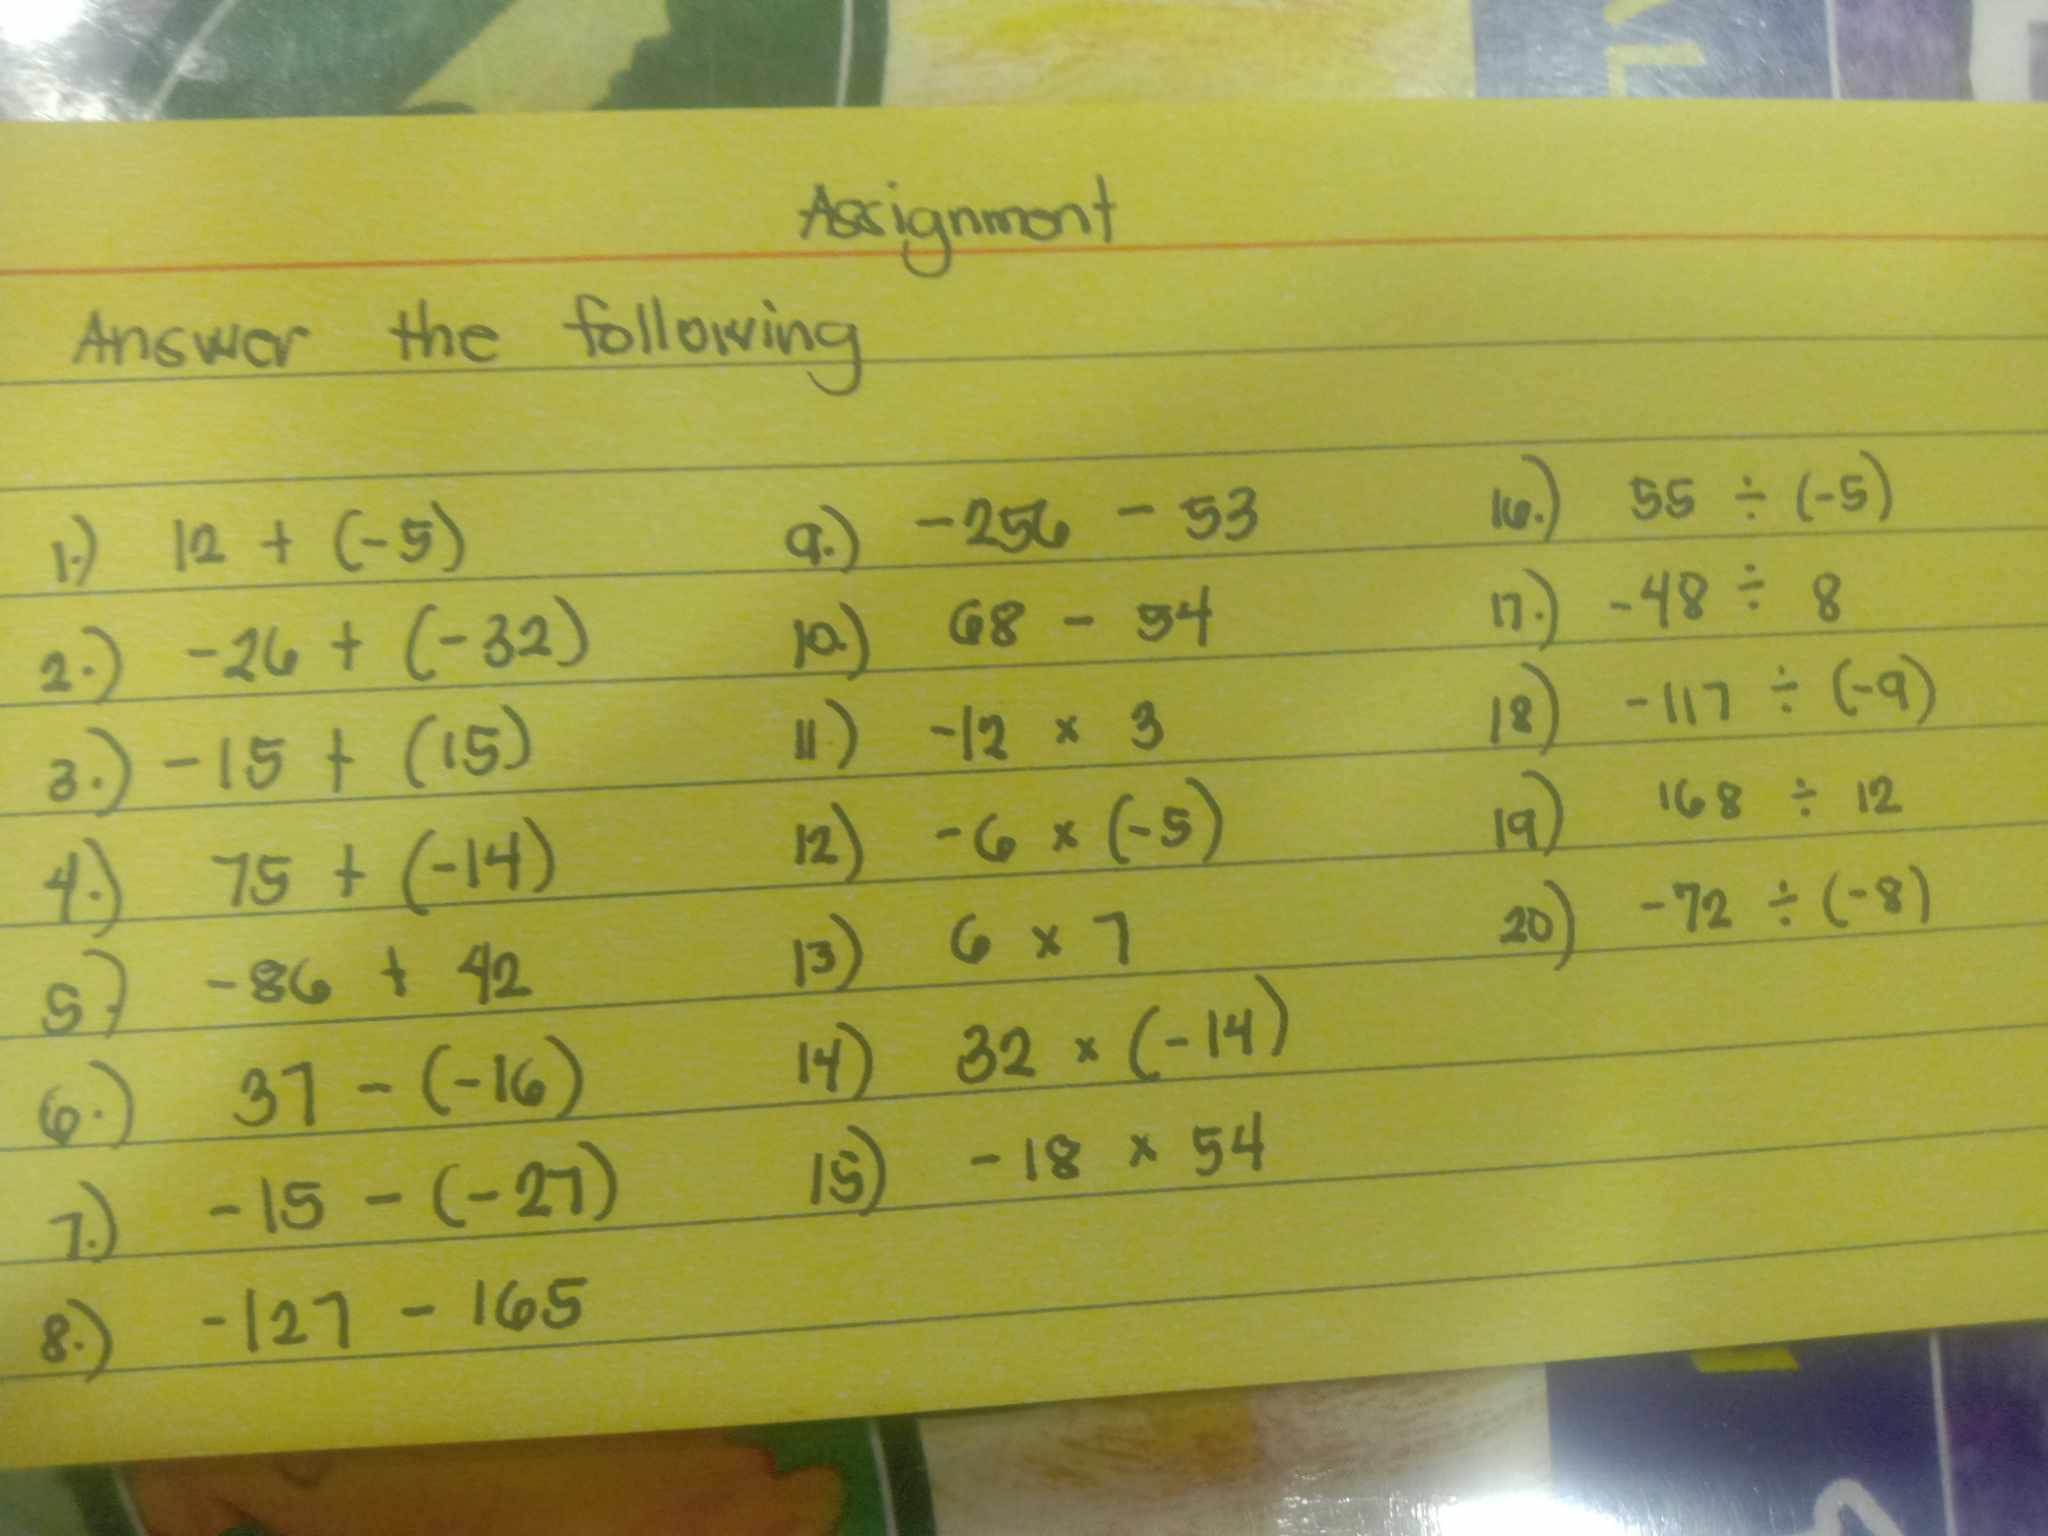 Assignment
Answer the following
1.) 12 + (-5)
2.) -26 + (-32)
3.) -15 + (15)
4.) 75 + (-14)
5.) -86 + 42
6.) 37 - (-16)
7.) -15 - (-27)
8.) -127 - 165
9.) -256 - 53
10.) 68 - 54
11.) -12 × 3
12) -6 × (-5)
13) 6 × 7
14) 32 × (-14)
15) -18 × 54
16.) 55 ÷ (-5)
17.) -48 ÷ 8
18) -117 ÷ (-9)
19) 168 ÷ 12
20) -72 ÷ (-8)